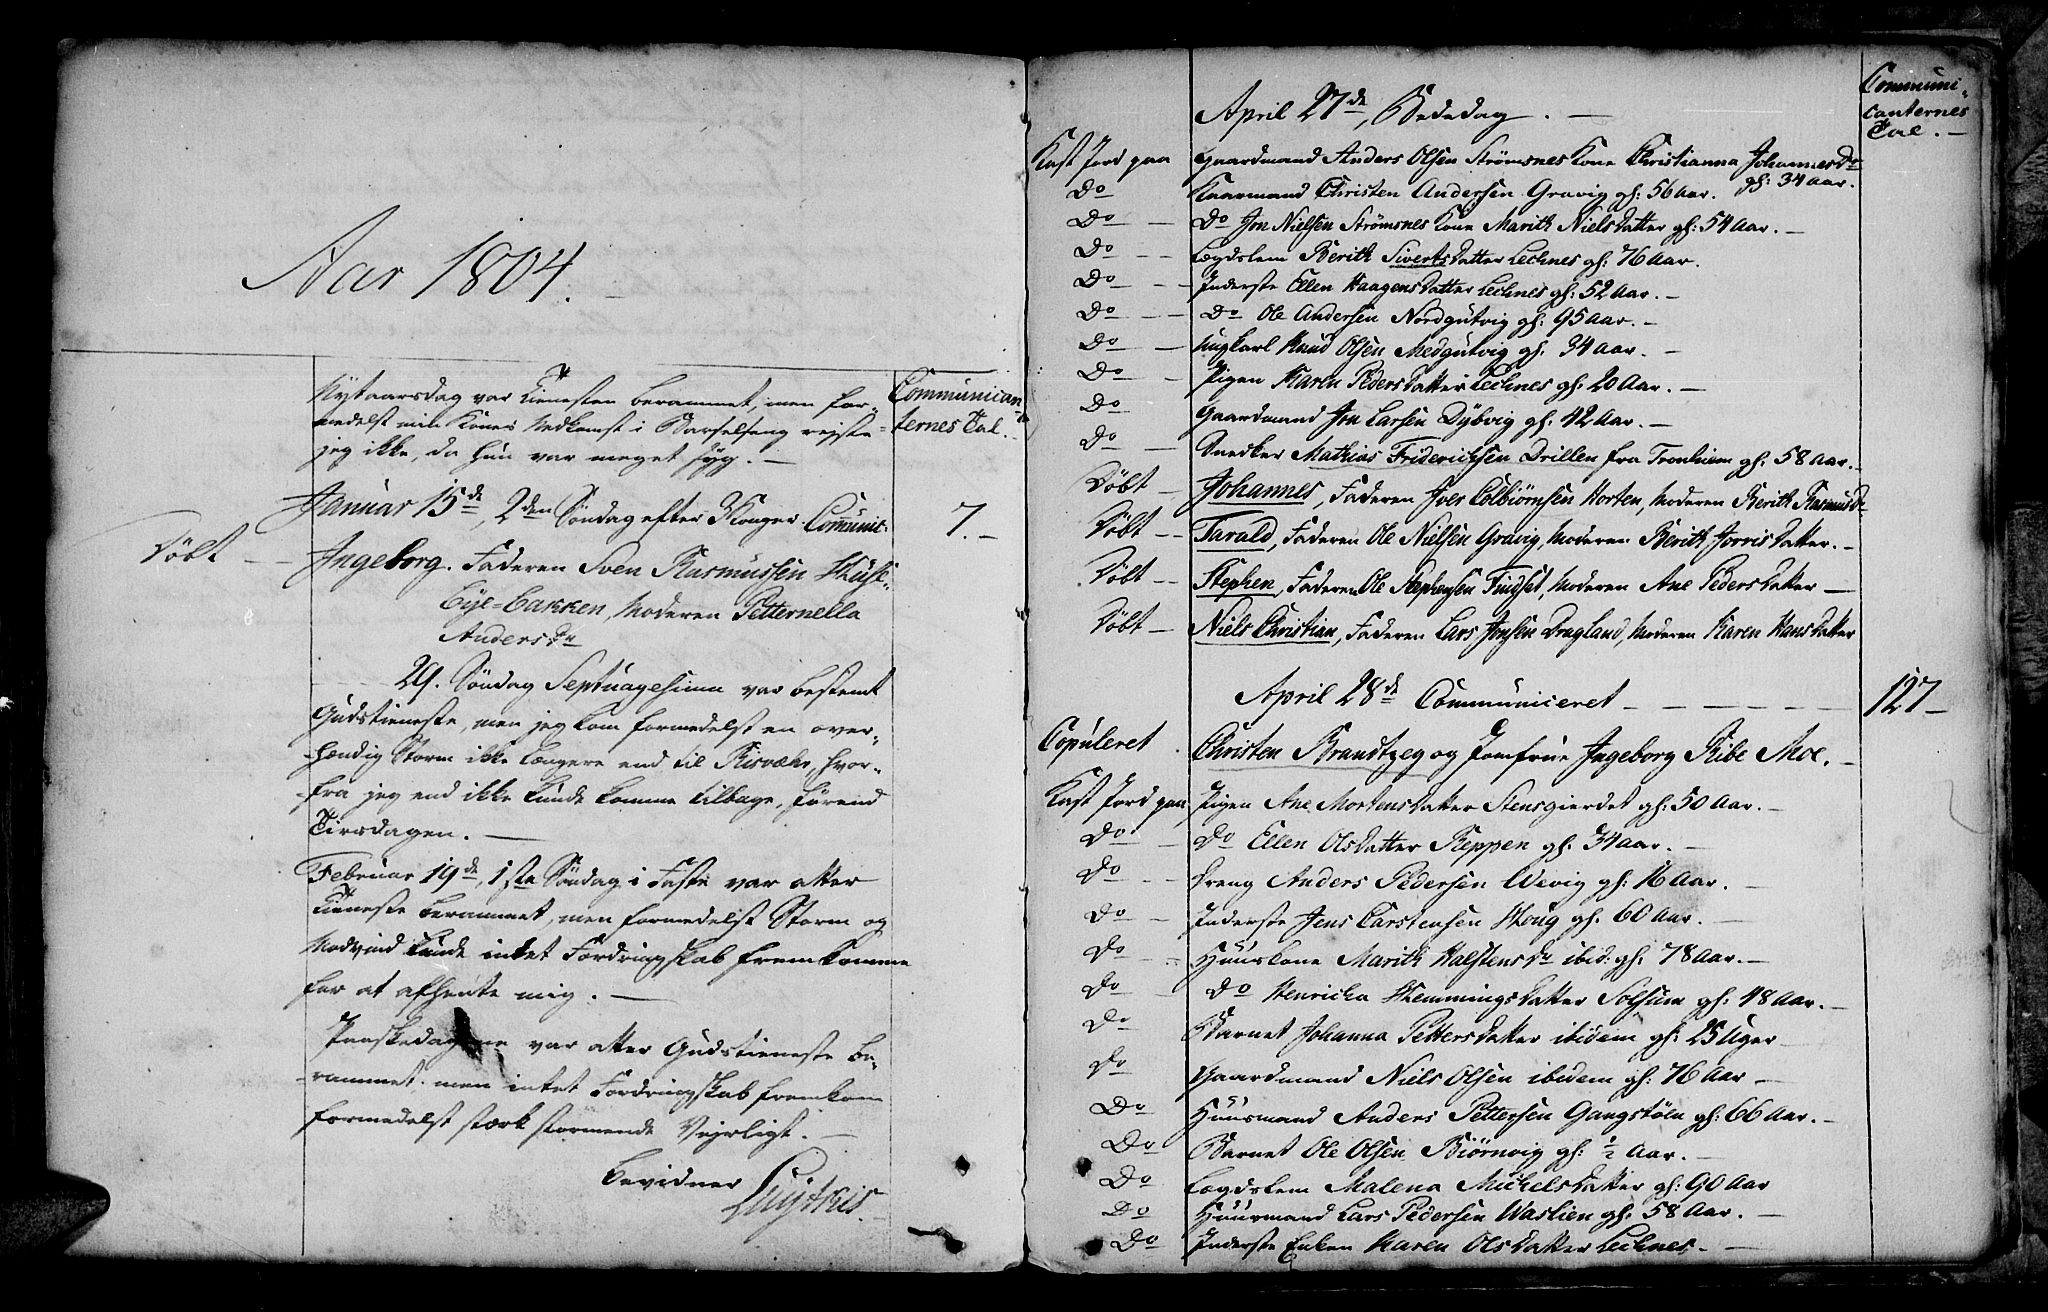 Aar 1804.
Nytaarsdag var Tienesten berammet, men for-
medelst min Kones Nedkomst i Barselseng reiste
jeg ikke, da hun var meget syg. —
Communican-
ternes Tal.
Januar 15de, 2den Søndag efter 3 Konger Comunic: 7. —
Døbt — Ingeborg. Faderen Sven Rasmussen
Eye-bakken, Moderen Petternella
Andersdr
29. Søndag Septuagesima var bestemt
Gudstieneste, men jeg kom formedelst en over-
hændig Storm ikke længere end til Risvær, hvor-
fra jeg end ikke kunde komme tilbage, førend
Tirsdagen. —
Februar 19de, 1ste Søndag i Faste var atter
Tieneste berammet, men formedelst Storm og
Modvind kunde intet Fordringskab fremkomme
for at afhente mig. —
Paaskedagene var atter Gudstieneste be-
rammet. men intet Fordringskab fremkom
formedelst stærk stormende Vejrligt. —
bevidner
Communi-
canternes
Tal. —
April 27de, Bededag. —
Kast Jord paa Gaardmand Anders Olsen Strømsnes Kone Christianna Johannesdr
gl: 34 Aar.
Do Kaarmand Christen Andersen Gravig gl: 56 Aar.
Do — Do Jon Nielsen Strømsnes Kone Marith Nielsdatter gl: 54 Aar. —
Do — Lægdslem Berith Sivertsdatter Lechnes gl: 76 Aar.
Do — Inderste Ellen Haagensdatter Lechnes gl: 52 Aar. —
Do — Do Ole Andersen Nordgutvig gl: 95 Aar. —
Do — Ungkarl Knud Olsen Medgutvig gl. 34 Aar. —
Do — Pigen Karen Pedersdatter Lechnes gl: 20 Aar. —
Do — Gaardmand Jon Larsen Dybvig gl: 42 Aar. —
Do — Snedker Mathias Friderichsen Drillen fra Tronhiem gl: 58 Aar. —
Døbt — Johannes, Faderen Iver Colbiørnsen Horten, Moderen Berith Rasmusdr
Døbt — Tarald, Faderen Ole Nielsen Gravig, Moderen Berith Jorrisdatter. —
Døbt — Stephen, Faderen Ole Stephensen Findset, Moderen Ane Pedersdatter —
Døbt — Niels Christian, Faderen Lars Jonsen Dragland, Moderen Karen Hansdatter
April 28de Communiceret — — — — — 127 —
Copuleret Christen Brandtzeg og Jomfrue Ingeborg Ribe Moe. —
Kast Jord paa Pigen Ane Mortensdatter Stensgierdet gl: 50 Aar. —
Do — Do Ellen Olsdatter Reppen gl: 34 Aar. —
Do — Dreng Anders Pedersen Wevig gl: 16 Aar. —
Do — Inderste Jens Carstensen Houg gl. 60 Aar. —
Do — Huuskone Marith Halstensdr ibid: gl. 78 Aar. —
Do — Do Henricha Hemmingsdatter Solsum gl: 48 Aar. —
Do Barnet Johanna Pettersdatter ibidem gl: 25 Uger —
Do Gaardmand Niels Olsen ibidem gl: 76 Aar —
Do Huusmand Anders Pettersen Gangstøen gl: 66 Aar. —
Do Barnet Ole Olsen Biørnvig gl: ½ Aar. —
Do Lægdslem Malena Michelsdatter gl: 90 Aar
Do Huusmand Lars Pedersen Waslien gl: 58 Aar. —
Do Inderste Enken Karen Olsdatter Lechnes. —